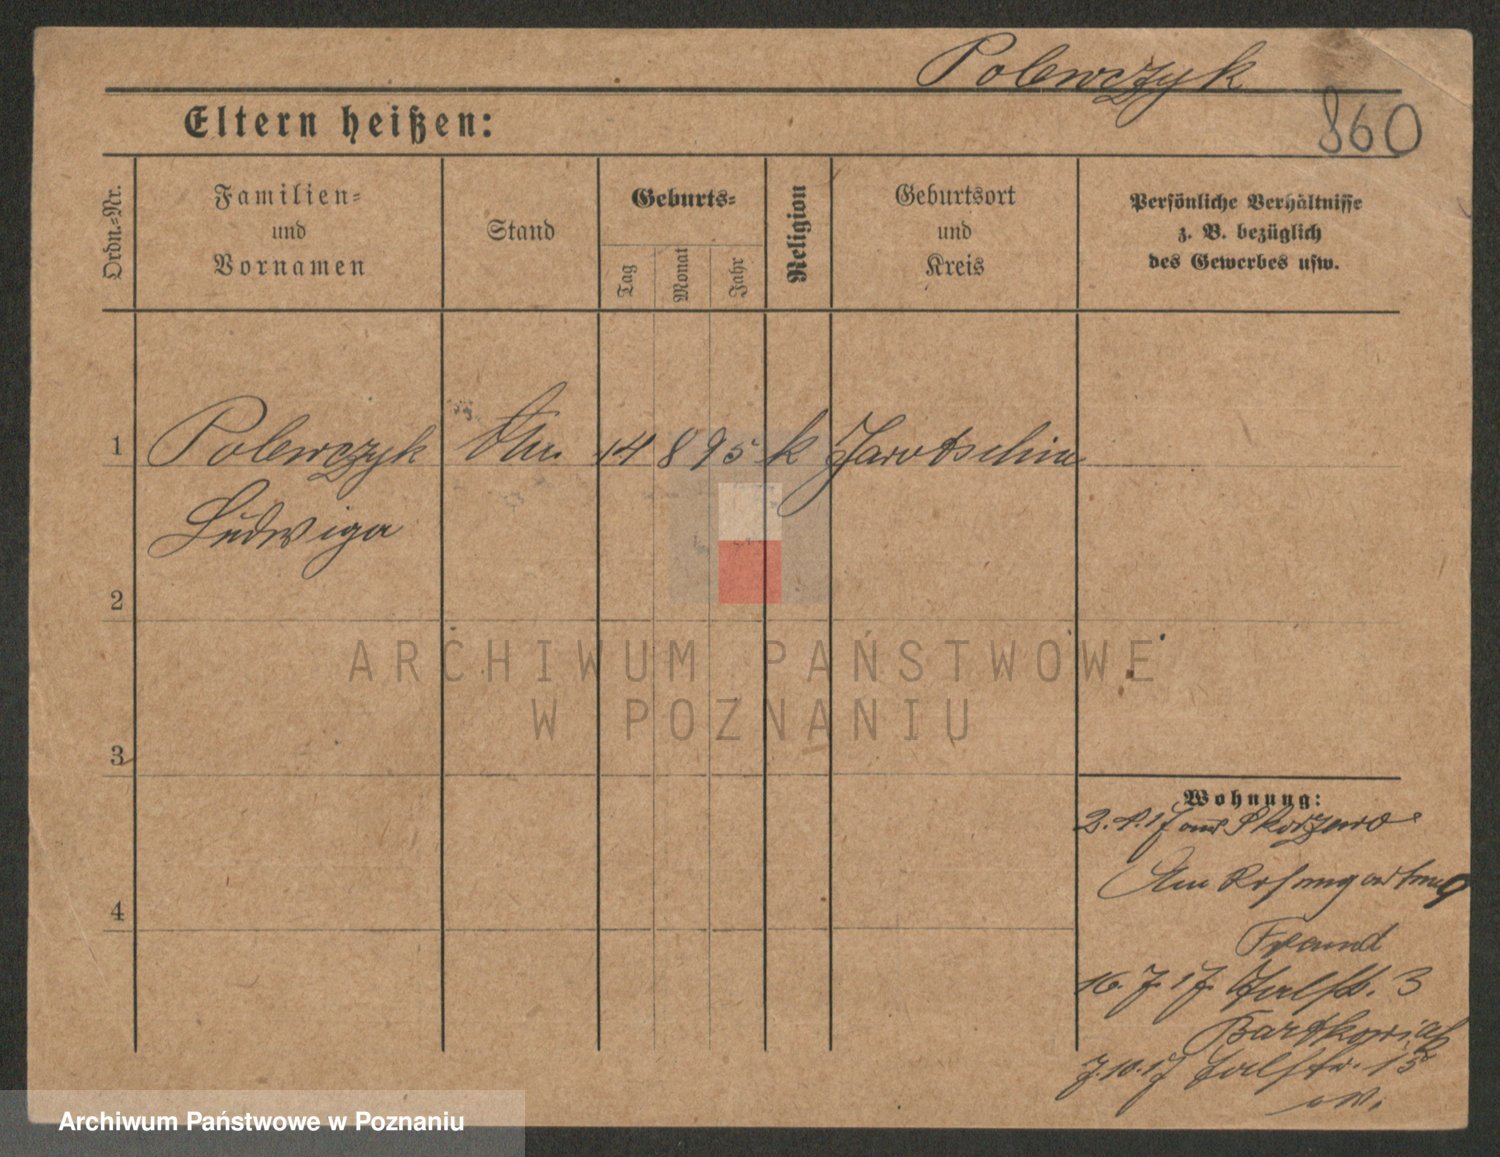 Polewczyk
860
Eltern heißen:
Ordn.-Nr.
Familien-
und
Vornamen
Stand
Geburts-
Tag
Monat
Jahr
Religion
Geburtsort
und
Kreis
Persönliche Verhältnisse
z. B. bezüglich
des Gewerbes usw.
1 Polewczyk 14 8 95 k Jarotschin
Ludwiga
2
3
4
Wohnung:
2.
Am
Freund
16. 7. 17. 3
Bartkowiak
7.10.17 Talstr. 15
ARCHIWUM PAŃSTWOWE
W POZNANIU
Archiwum Państwowe w Poznaniu